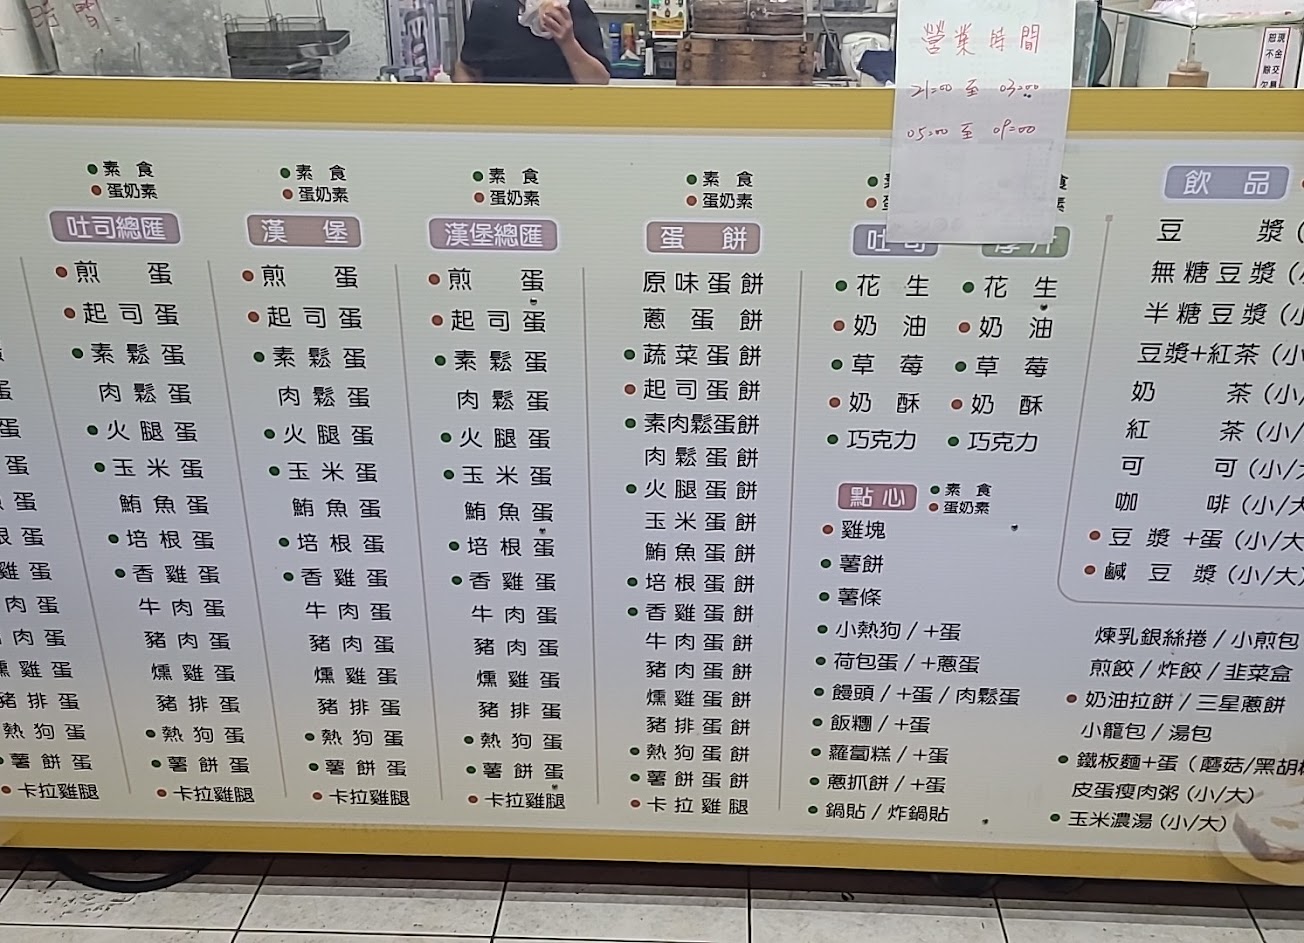 營業時間
21:00 至 03:00
05:00 至 09:00
恕現
不金
賒交
欠易
素 食
蛋奶素
吐司總匯
煎 蛋
起司蛋
素鬆蛋
肉鬆蛋
火腿蛋
玉米蛋
鮪魚蛋
培根蛋
香雞蛋
牛肉蛋
豬肉蛋
燻雞蛋
豬排蛋
熱狗蛋
薯餅蛋
卡拉雞腿
素 食
蛋奶素
漢 堡
煎 蛋
起司蛋
素鬆蛋
肉鬆蛋
火腿蛋
玉米蛋
鮪魚蛋
培根蛋
香雞蛋
牛肉蛋
豬肉蛋
燻雞蛋
豬排蛋
熱狗蛋
薯餅蛋
卡拉雞腿
素 食
蛋奶素
漢堡總匯
煎 蛋
起司蛋
素鬆蛋
肉鬆蛋
火腿蛋
玉米蛋
鮪魚蛋
培根蛋
香雞蛋
牛肉蛋
豬肉蛋
燻雞蛋
豬排蛋
熱狗蛋
薯餅蛋
卡拉雞腿
素 食
蛋奶素
蛋 餅
原味蛋餅
蔥蛋餅
蔬菜蛋餅
起司蛋餅
素肉鬆蛋餅
肉鬆蛋餅
火腿蛋餅
玉米蛋餅
鮪魚蛋餅
培根蛋餅
香雞蛋餅
牛肉蛋餅
豬肉蛋餅
燻雞蛋餅
豬排蛋餅
熱狗蛋餅
薯餅蛋餅
卡拉雞腿
吐司
花 生
奶 油
草 莓
奶 酥
巧克力
厚片
花 生
奶 油
草 莓
奶 酥
巧克力
點心
素 食
蛋奶素
雞塊
薯餅
薯條
小熱狗 / +蛋
荷包蛋 / +蔥蛋
饅頭 / +蛋 / 肉鬆蛋
飯糰 / +蛋
蘿蔔糕 / +蛋
蔥抓餅 / +蛋
鍋貼 / 炸鍋貼
飲 品
豆 漿 (
無糖豆漿 (
半糖豆漿 (小
豆漿+紅茶 (小
奶 茶 (小/
紅 茶 (小/
可 可 (小/
咖 啡 (小/大
豆 漿 +蛋 (小/大
鹹 豆 漿 (小/大)
煉乳銀絲捲 / 小煎包
煎餃 / 炸餃 / 韭菜盒
奶油拉餅 / 三星蔥餅
小籠包 / 湯包
鐵板麵+蛋 (蘑菇/黑胡椒
皮蛋瘦肉粥 (小/大)
玉米濃湯 (小/大)